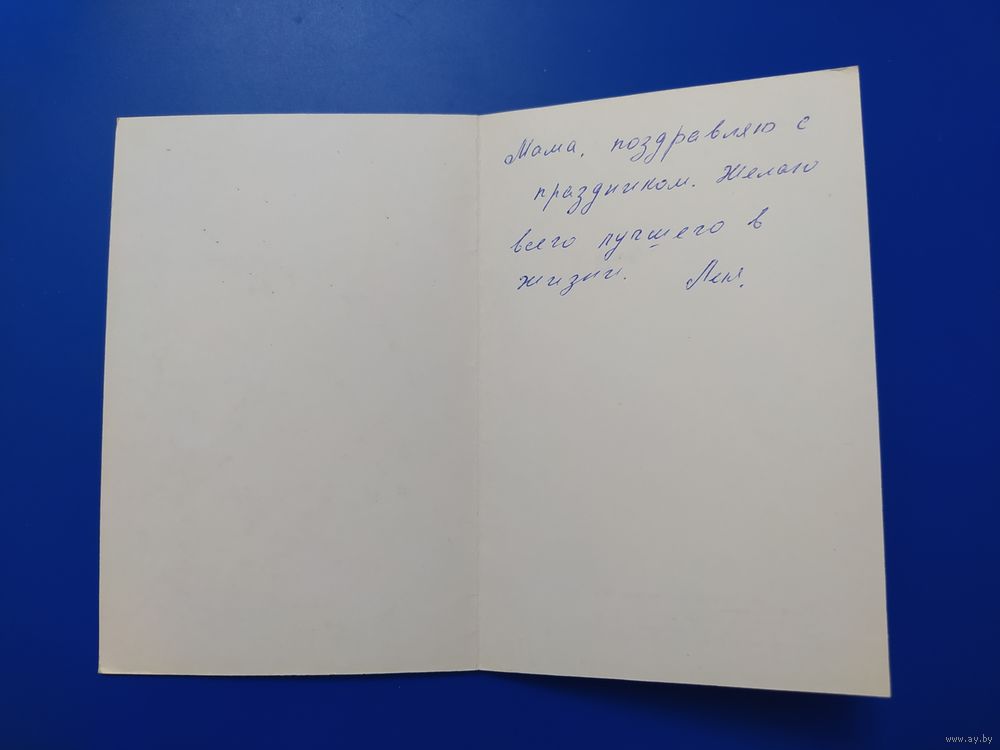 Мама, поздравляю с
праздником. Желаю
всего лучшего в
жизни. Лена.
www.ay.by